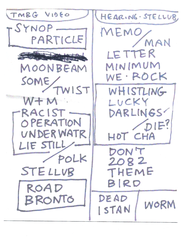 TMBG VIDEO
SYNOP
PARTICLE
MOONBEAM
SOME/
TWIST
W+M
RACIST
OPERATION
UNDERWATR
LIE STILL/
POLK
STELLUB
ROAD
BRONTO
HEARING-STELLUB
MEMO/
MAN
LETTER
MINIMUM
WE·ROCK
WHISTLING
LUCKY
DARLINGS/
DIE?
HOT CHA
DON'T
2082
THEME
BIRD
DEAD
ISTAN
WORM